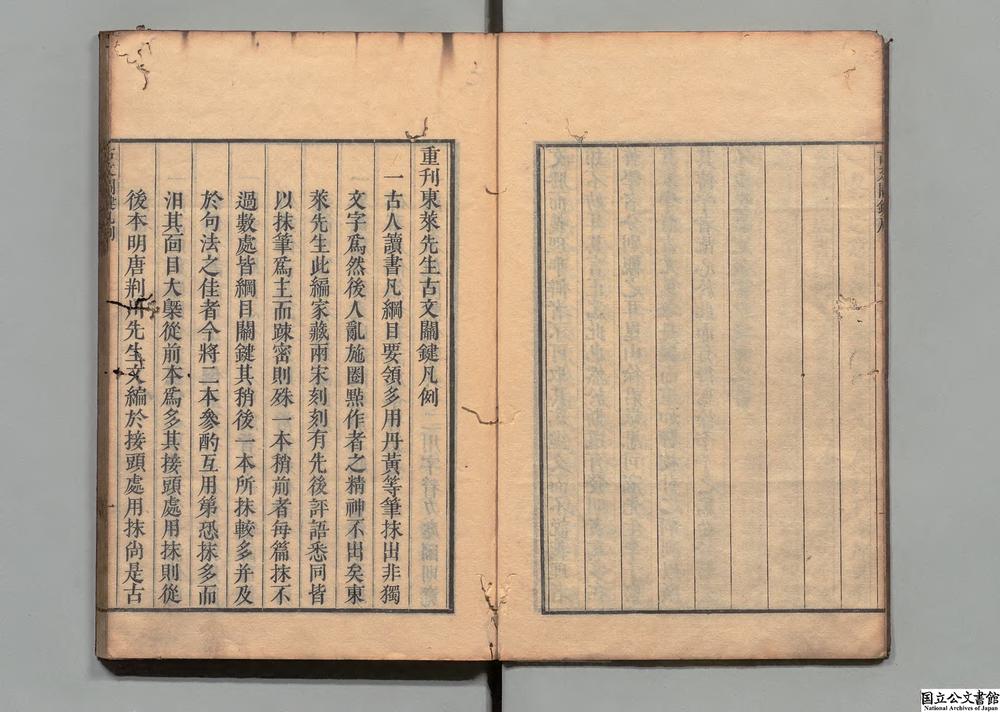 重刊東萊先生古文關鍵凡例
一古人讀書凡綱目要領多用丹黃等筆抹出非獨
文字爲然後人亂施圈㸃作者之精神不出矣東
萊先生此編家藏兩宋刻刻有先後評語悉同皆
以抹筆爲主而疎密則殊一本稍前者每篇抹不
過數處皆綱目關鍵其稍後一本所抹較多并及
於句法之佳者今將二本參酌互用第恐抹多而
汨其面目大槩從前本爲多其接頭處用抹則從
後本明唐荆川先生文編於接頭處用抹尚是古
一
国立公文書館
National Archives of Japan